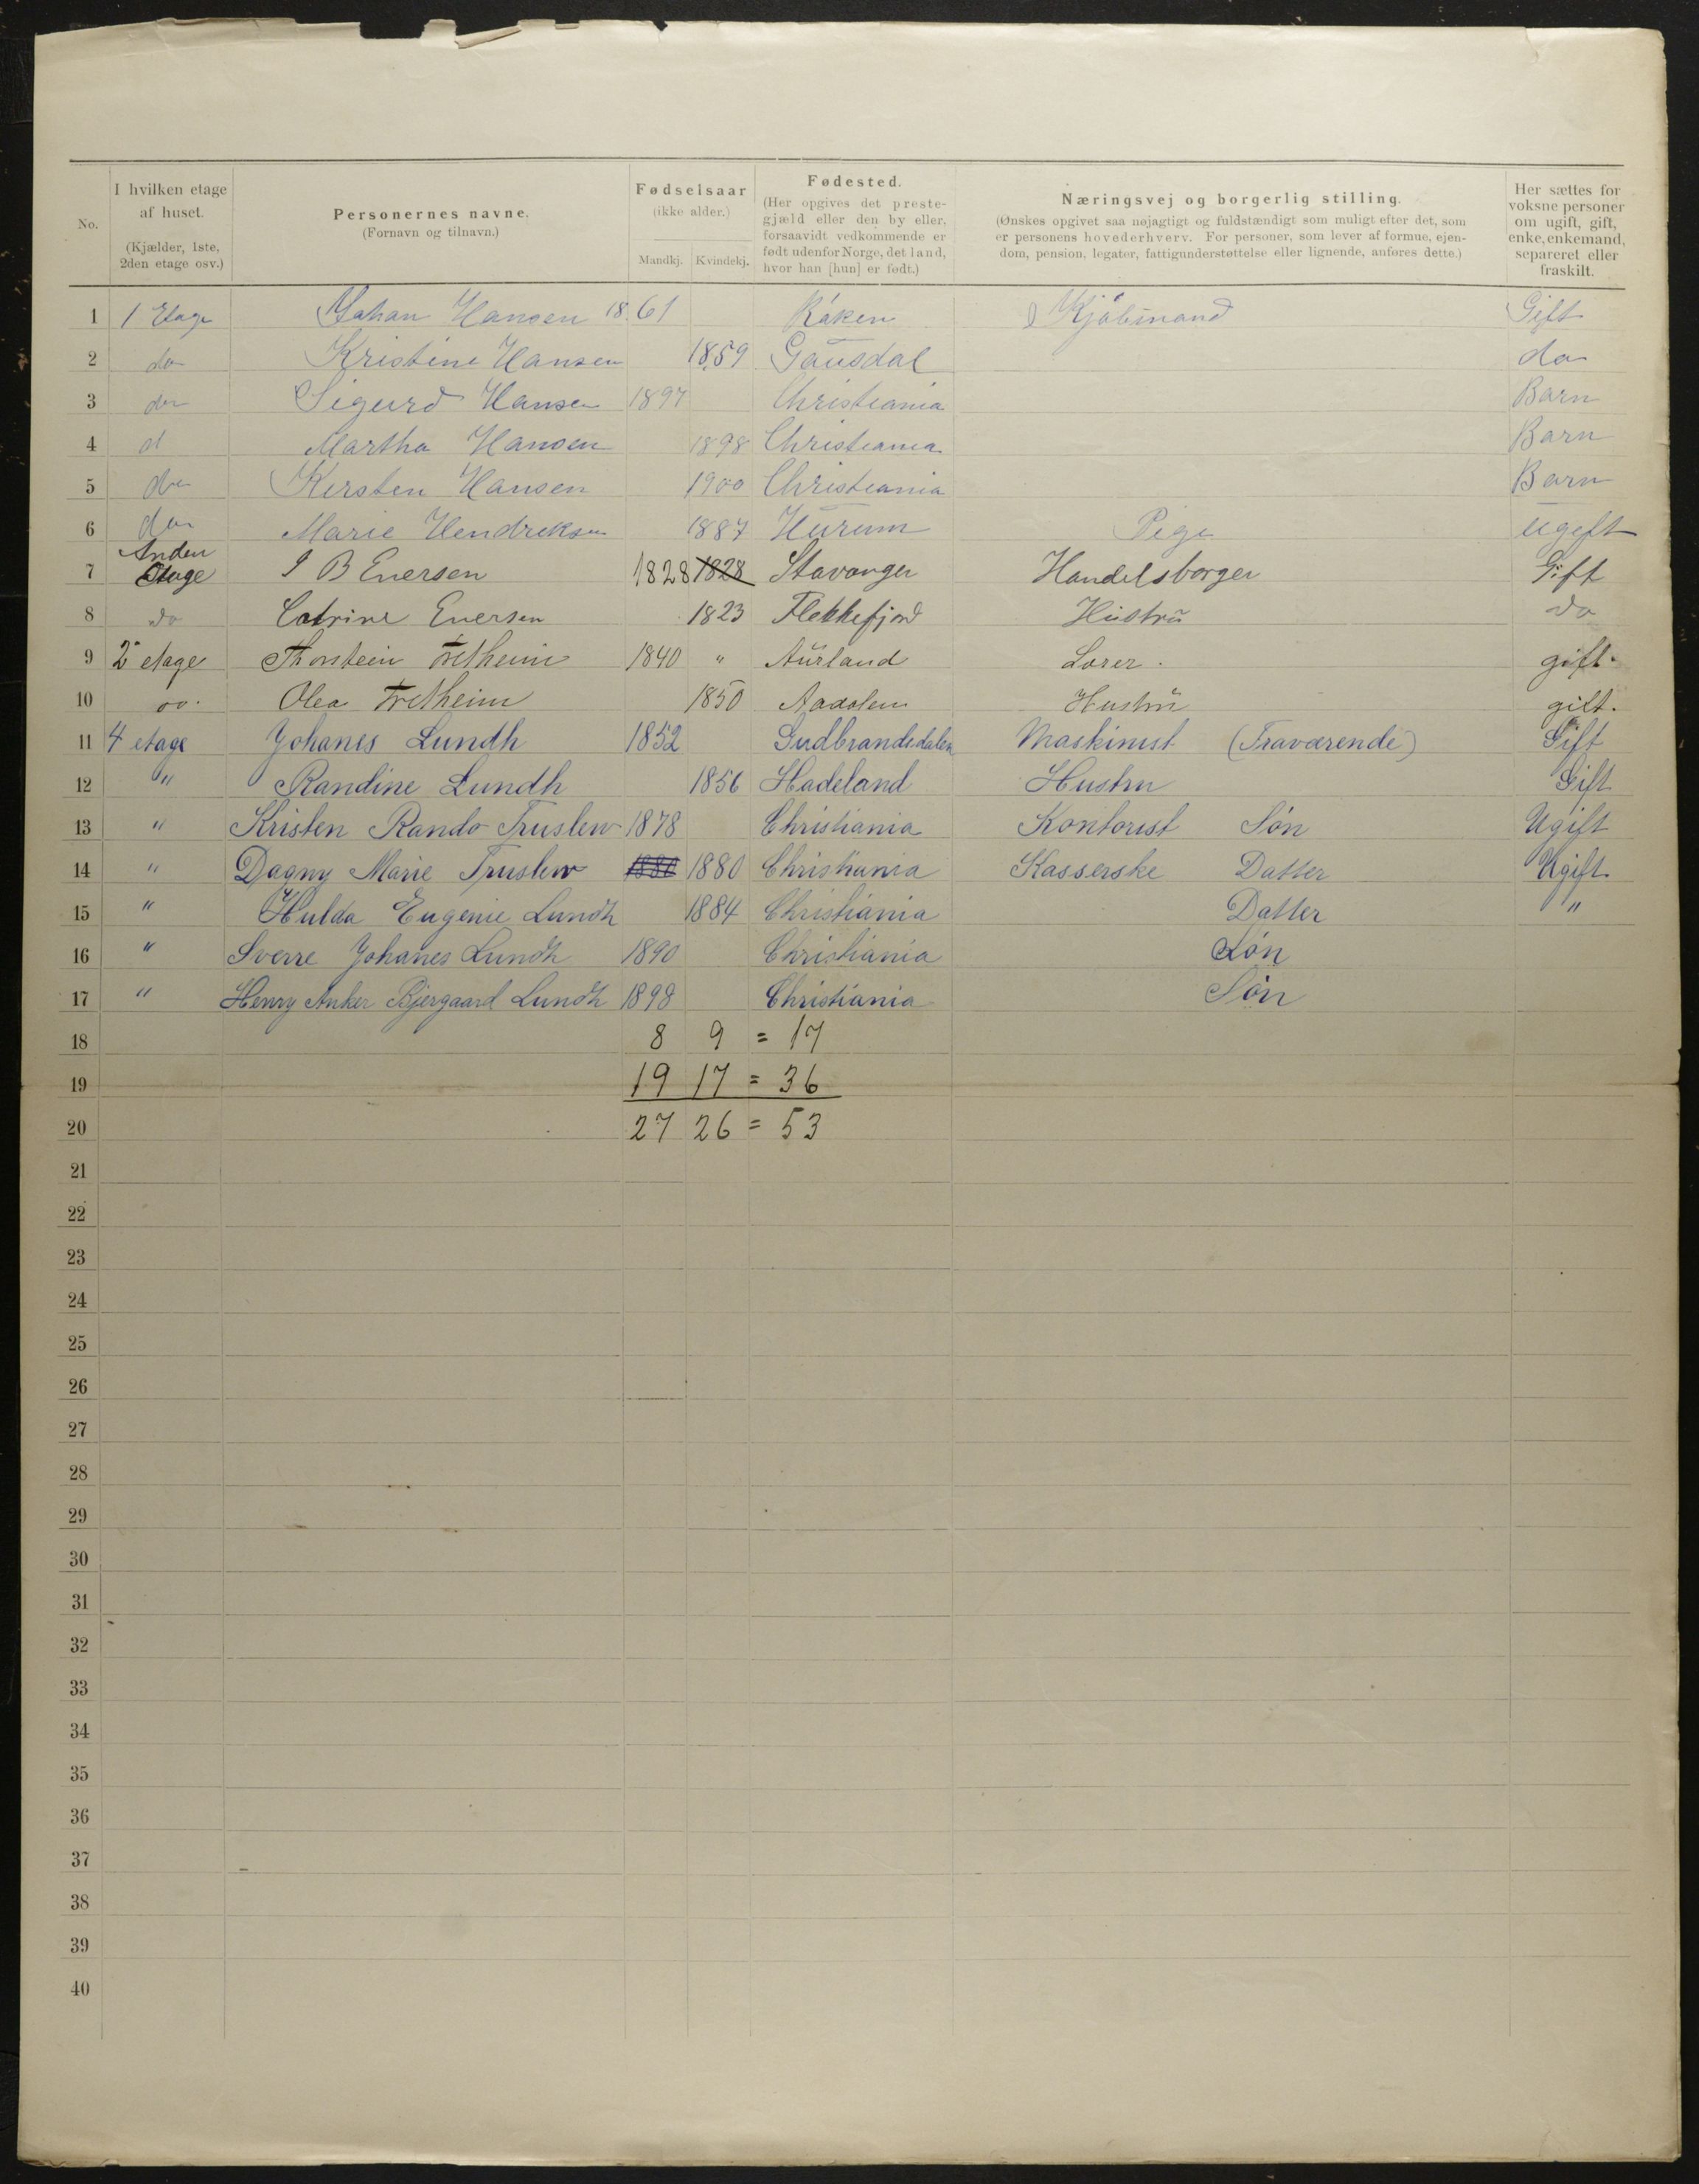 No.
I hvilken etage af huset.
(Kjælder, 1ste, 2den etage osv.)
Personernes navne.
(Fornavn og tilnavn.)
Fødselsaar
(ikke alder.)
Mandkj. Kvindekj.
Fødested.
(Her opgives det preste-
gjæld eller den by eller,
forsaavidt vedkommende er
født udenfor Norge, det land,
hvor han [hun] er født.)
Næringsvej og borgerlig stilling.
(Ønskes opgivet saa nøjagtigt og fuldstændigt som muligt efter det, som
er personens hovederhverv. For personer, som lever af formue, ejen-
dom, pension, legater, fattigunderstøttelse eller lignende, anføres dette.)
Her sættes for
voksne personer
om ugift, gift,
enke, enkemand,
separeret eller
fraskilt.
1 1 Etage Johan Hansen 1861 Røken Kjøbmand Gift
2 do Kristine Hansen 1859 Gausdal do
3 do Sigurd Hansen 1897 Christiania Barn
4 d Martha Hansen 1898 Christiania Barn
5 do Kirsten Hansen 1900 Christiania Barn
6 do Marie Hendriksen 1887 Hurum Pige Ugift
7 Anden Etage I B Enersen 1828 1828 Stavanger Handelsborger Gift
8 do Catrine Enersen 1823 Flekkefjord Hustru do
9 2 etage Thorstein Fretheim 1840 " Aurland Lærer. gift.
10 do. Olea Fretheim 1850 Aadalen Hustru gift.
11 4 etage Johanes Lundh 1852 Gudbrandsdalen Maskinist (Fraværende) Gift
12 " Randine Lundh 1856 Hadeland Hustru Gift
13 " Kristen Rando Truslew 1878 Christiania Kontorist Søn Ugift
14 " Dagny Marie Truslew 1880 1880 Christiania Kasserske Datter Ugift
15 " Hulda Eugenie Lundh 1884 Christiania Datter "
16 " Sverre Johanes Lundh 1890 Christiania Søn
17 " Henry Anker Bjergaard Lundh 1898 Christiania Søn
18 8 9 = 17
19 19 17 = 36
20 27 26 = 53
21
22
23
24
25
26
27
28
29
30
31
32
33
34
35
36
37
38
39
40